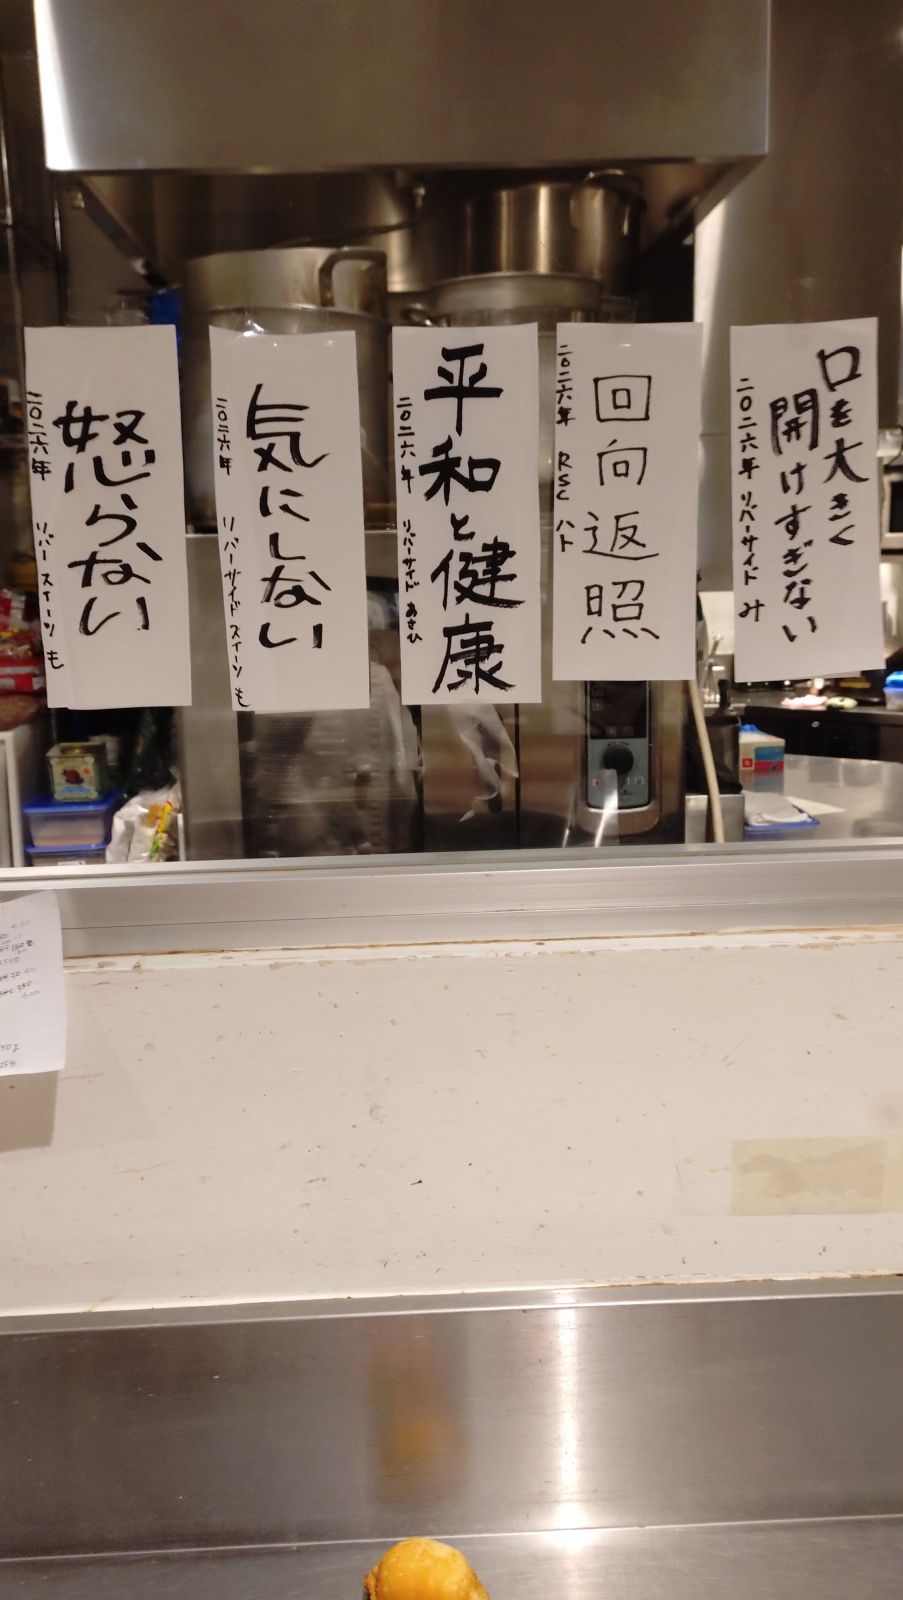 口を大きく
開けすぎない
二〇二六年 リバーサイド み
二〇二六年 RSC ハト
回向返照
平和と健康
二〇二六年 リバーサイド あさひ
気にしない
二〇二六年 リバーサイドスイーツ も
怒らない
二〇二六年 リバースイーツ も